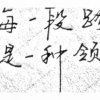 每一段
是一种领